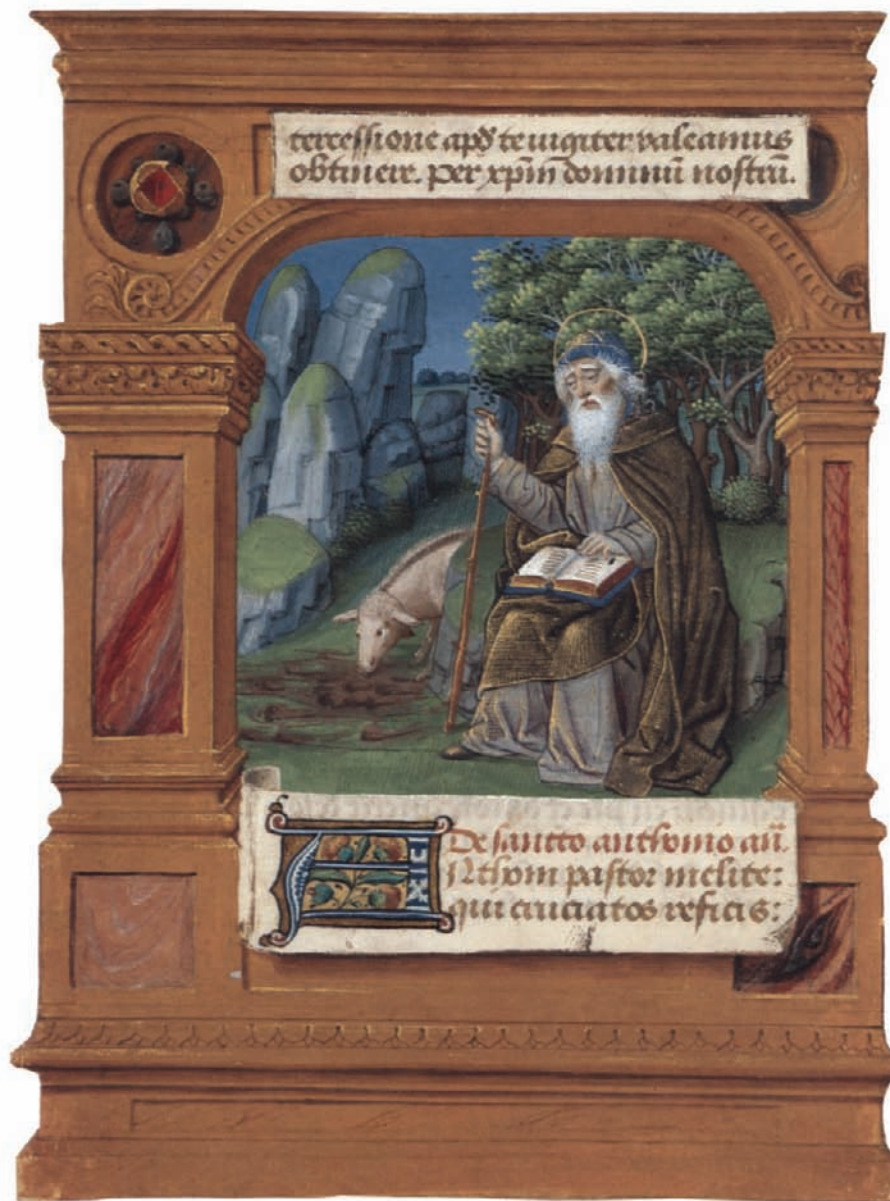 tercessione apd te iugiter valeamus
obtinere. per xpm dominu nostru.
De sancto anthonio an.
Nthoni pastor inclite:
qui cruciatos reficis: